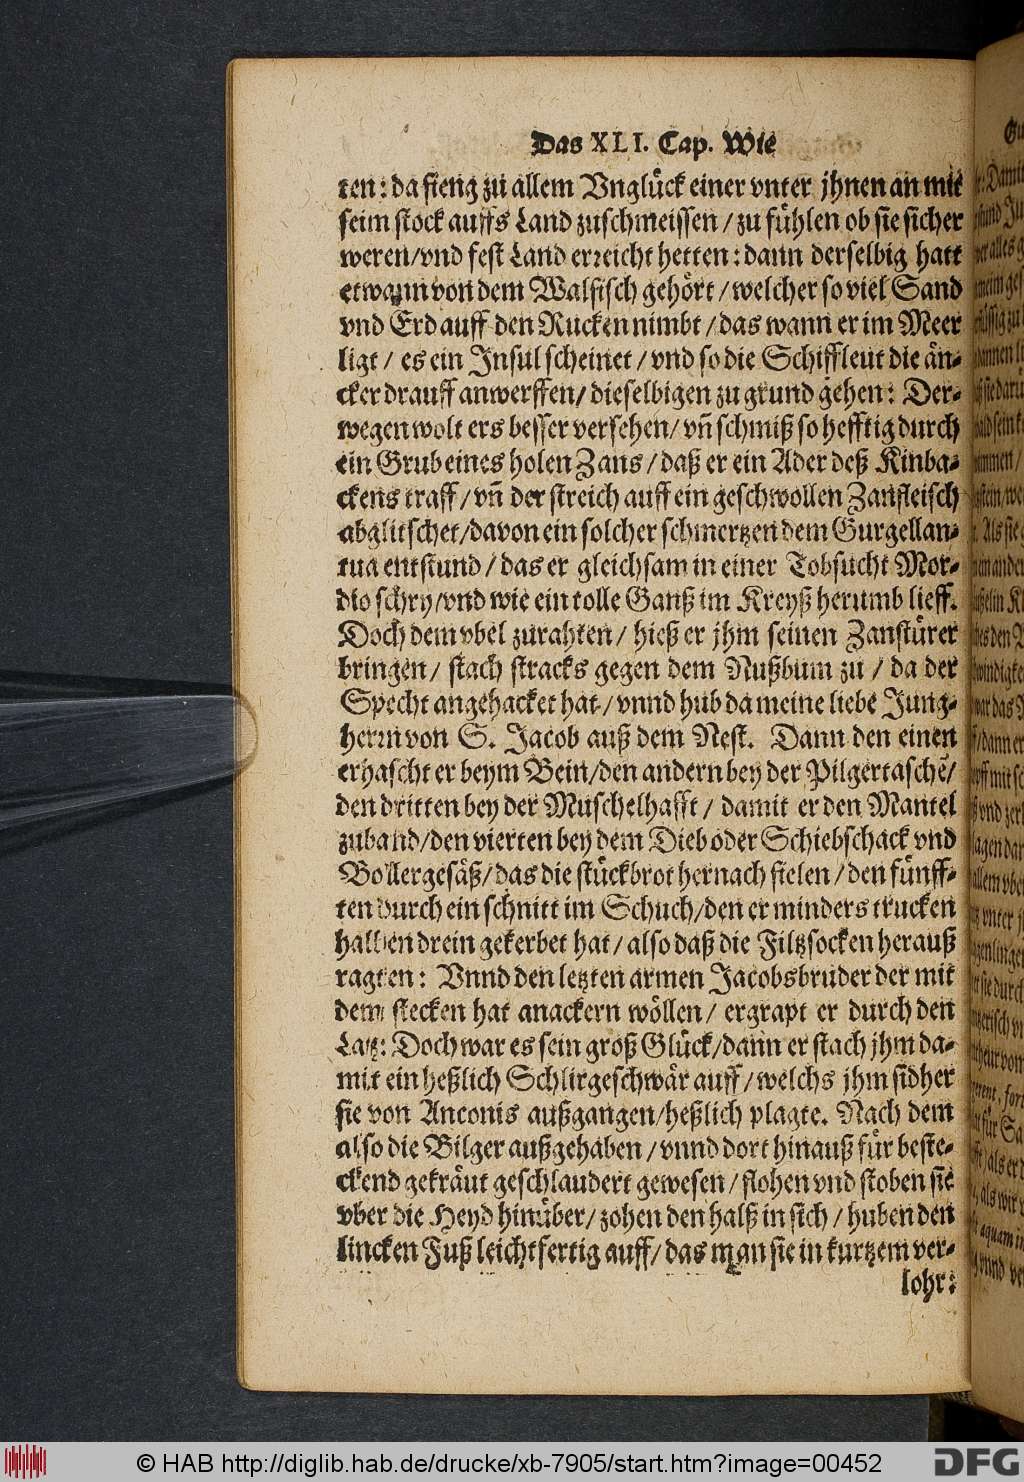 Das XLI. Cap. Wie
ten: da fieng zu allem Vnglück einer vnter jhnen an mit
seim stock auffs Land zuschmeissen / zu fühlen ob sie sicher
weren/vnd fest Land erreicht hetten: dann derselbig hatt
etwann von dem Walfisch gehört / welcher so viel Sand
vnd Erd auff den Rucken nimbt / das wann er im Meer
ligt / es ein Insul scheinet / vnd so die Schiffleut die än-
cker drauff anwerffen/ dieselbigen zu grund gehen: Der-
wegen wolt ers besser versehen/ vñ schmiß so hefftig durch
ein Grub eines holen Zans / daß er ein Ader deß Kinba-
ckens traff / vñ der streich auff ein geschwollen Zanfleisch
abglitschet/davon ein solcher schmertzen dem Gurgellan-
tua entstund / das er gleichsam in einer Tobsucht Mor-
dio schry/vnd wie ein tolle Ganß im Kreyß herumb lieff.
Doch dem vbel zurahten / hieß er jhm seinen Zanstürer
bringen / stach stracks gegen dem Nußbum zu / da der
Specht angehacket hat / vnnd hub da meine liebe Jung-
herrn von S. Jacob auß dem Nest. Dann den einen
erhascht er beym Bein/den andern bey der Pilgertaschē/
den dritten bey der Muschelhafft / damit er den Mantel
zuband/den vierten bey dem Dieb oder Schiebschack vnd
Bollergesäß/das die stückbrot hernach fielen / den fünff-
ten durch ein schnitt im Schuch/den er minders trucken
halben drein gekerbet hat / also daß die Filtzsocken herauß
ragten: Vnnd den letzten armen Jacobsbruder der mit
dem stecken hat anackern wöllen / ergrapt er durch den
Latz: Doch war es sein groß Glück/dann er stach jhm da-
mit ein heßlich Schlirgeschwär auff / welchs jhm sidher
sie von Anconis außgangen/heßlich plagte. Nach dem
also die Bilger außgehaben / vnnd dort hinauß für beste-
ckend gekräut geschlaudert gewesen / flohen vnd stoben sie
vber die Heyd hinüber/ zohen den halß in sich / huben den
lincken Fuß leichtfertig auff/ das man sie in kurtzem ver-
lohr:
© HAB http://diglib.hab.de/drucke/xb-7905/start.htm?image=00452
DFG